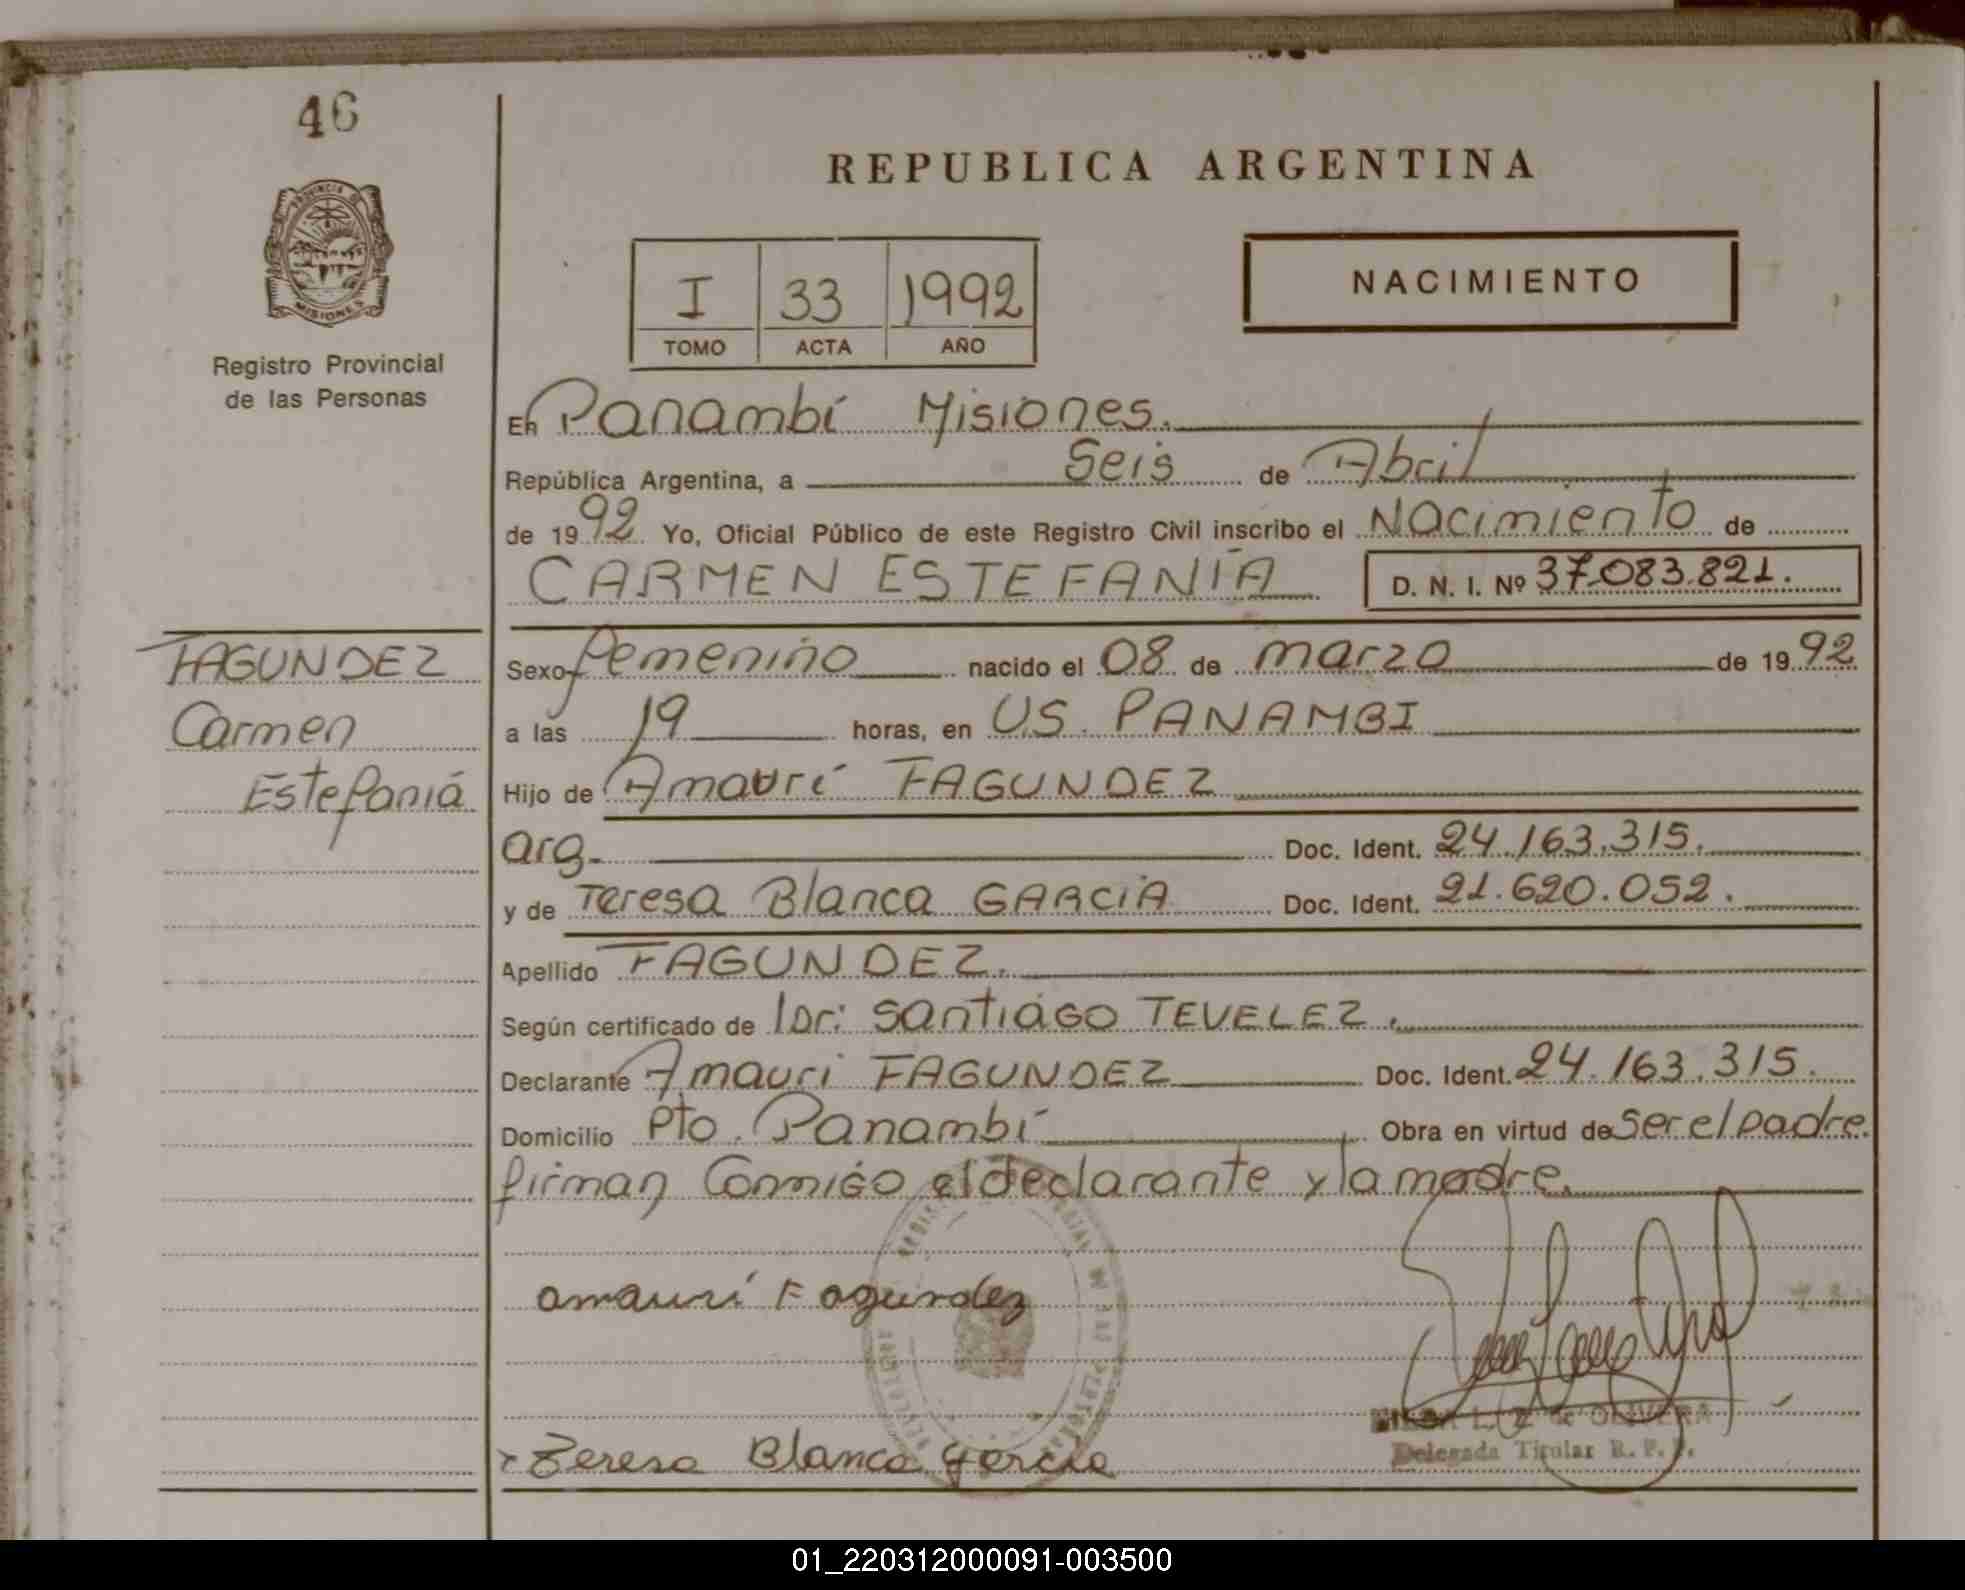 46
PROVINCIA DE
MISIONES
Registro Provincial
de las Personas
REPUBLICA ARGENTINA
I 33 1992
TOMO ACTA AÑO
NACIMIENTO
En Panambí Misiones.
República Argentina, a Seis de Abril
de 1992 Yo, Oficial Público de este Registro Civil inscribo el Nacimiento de
CARMEN ESTEFANÍA D. N. I. Nº 37.083.821.
FAGUNDEZ
Carmen
Estefaniá
Sexo femenino nacido el 08 de marzo de 1992
a las 19 horas, en U.S. PANAMBI
Hijo de Amaurí FAGUNDEZ
arg. Doc. Ident. 24.163.315.
y de Teresa Blanca GARCIA Doc. Ident. 21.620.052.
Apellido FAGUNDEZ.
Según certificado de Santiago TEVELEZ.
Declarante Amauri FAGUNDEZ Doc. Ident. 24.163.315.
Domicilio Pto. Panambí Obra en virtud de ser el padre.
firman Conmigo el declarante y la madre.
amaurí Fagundez
Teresa Blanca Garcia
de OLIVERA
Delegada Titular R. P. P.
01_220312000091-003500